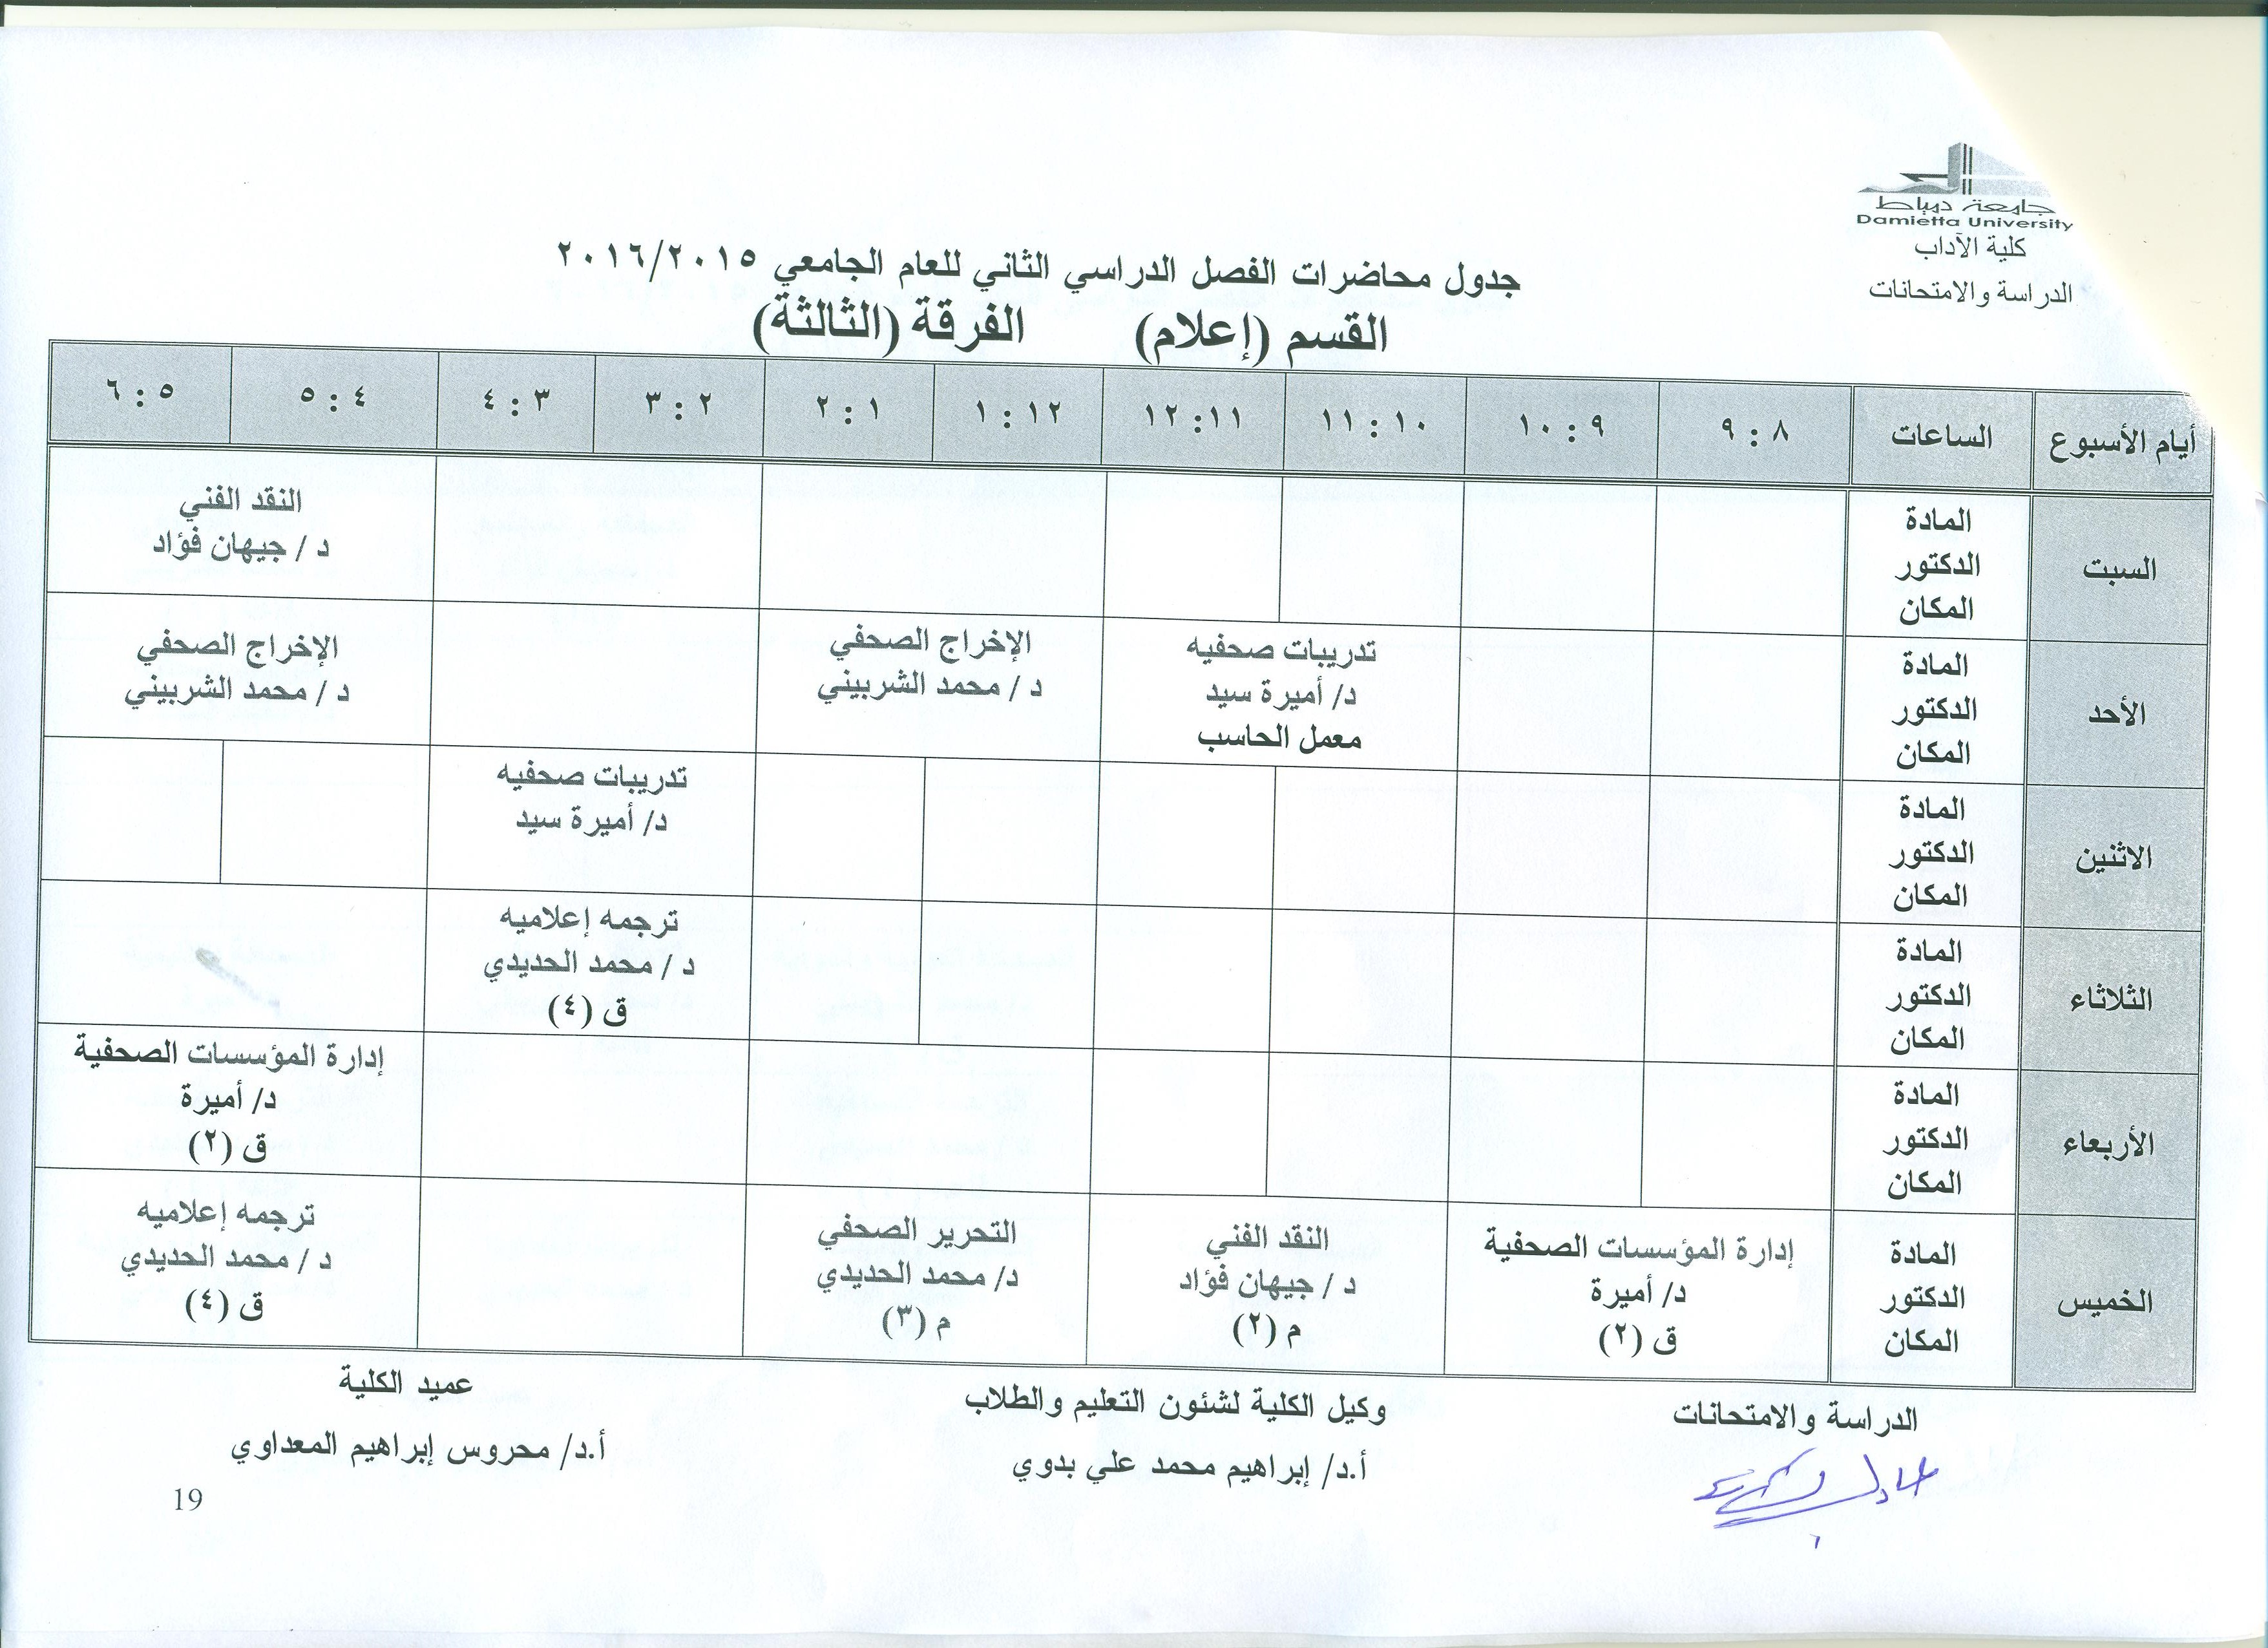 جامعة دمياط
Damietta University
كلية الآداب
الدراسة والامتحانات
جدول محاضرات الفصل الدراسي الثاني للعام الجامعي ٢٠١٦/٢٠١٥
القسم (إعلام) الفرقة (الثالثة)
أيام الأسبوع الساعات ٨ : ٩ ٩ : ١٠ ١٠ : ١١ ١١ : ١٢ ١٢ : ١ ١ : ٢ ٢ : ٣ ٣ : ٤ ٤ : ٥ ٥ : ٦
السبت
المادة
الدكتور
المكان
النقد الفني
د / جيهان فؤاد
الأحد
المادة
الدكتور
المكان
تدريبات صحفيه
د/ أميرة سيد
معمل الحاسب
الإخراج الصحفي
د / محمد الشربيني
الإخراج الصحفي
د / محمد الشربيني
الاثنين
المادة
الدكتور
المكان
تدريبات صحفيه
د/ أميرة سيد
الثلاثاء
المادة
الدكتور
المكان
ترجمه إعلاميه
د / محمد الحديدي
ق (٤)
الأربعاء
المادة
الدكتور
المكان
إدارة المؤسسات الصحفية
د/ أميرة
ق (٢)
الخميس
المادة
الدكتور
المكان
إدارة المؤسسات الصحفية
د/ أميرة
ق (٢)
النقد الفني
د / جيهان فؤاد
م (٢)
التحرير الصحفي
د/ محمد الحديدي
م (٣)
ترجمه إعلاميه
د / محمد الحديدي
ق (٤)
الدراسة والامتحانات
وكيل الكلية لشئون التعليم والطلاب
أ.د/ إبراهيم محمد علي بدوي
عميد الكلية
أ.د/ محروس إبراهيم المعداوي
19